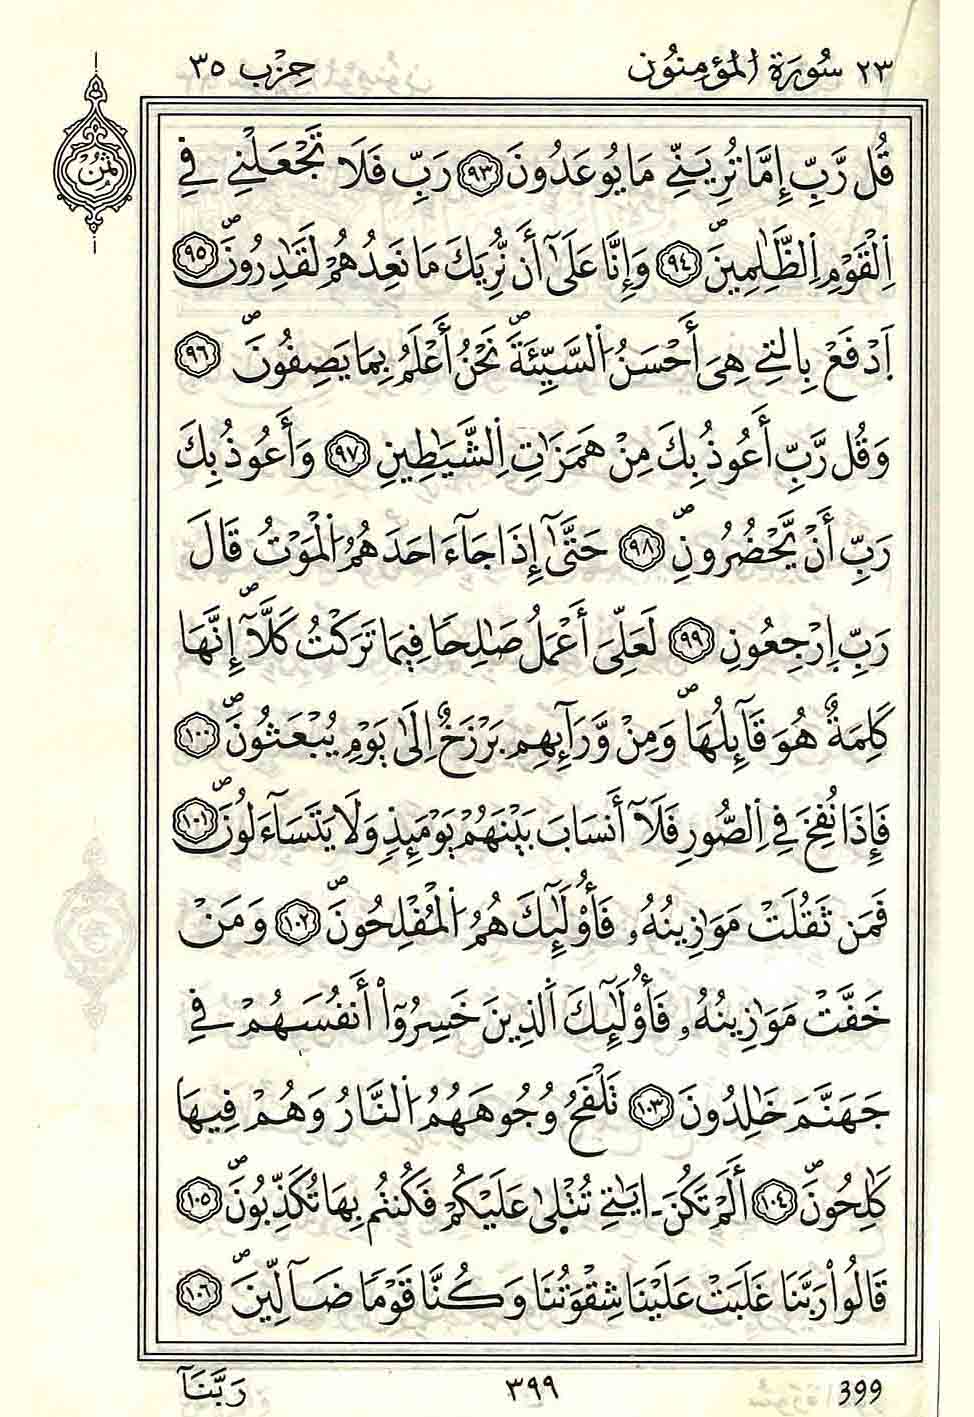 ٢٣ سُورَةُ الْمُؤْمِنُون حِزْب ٣٥
ثمن
قُل رَّبِّ إِمَّا تُرِيَنِّے مَا يُوعَدُونَ ٩٣ رَبِّ فَلَا تَجْعَلْنِے فِے
اِ۬لْقَوْمِ اِ۬لظَّٰلِمِينَۖ ٩٤ وَإِنَّا عَلَىٰٓ أَن نُّرِيَكَ مَا نَعِدُهُمْ لَقَٰدِرُونَۖ ٩٥
اَ۪دْفَعْ بِالتِے هِيَ أَحْسَنُ اُ۬لسَّيِّئَةَۖ نَحْنُ أَعْلَمُ بِمَا يَصِفُونَۖ ٩٦
وَقُل رَّبِّ أَعُوذُ بِكَ مِنْ هَمَزَٰتِ اِ۬لشَّيَٰطِينِ ٩٧ وَأَعُوذُ بِكَ
رَبِّ أَنْ يَّحْضُرُونِۖ ٩٨ حَتَّىٰٓ إِذَا جَآءَ احَدَهُمُ اُ۬لْمَوْتُ قَالَ
رَبِّ اِ۪رْجِعُونِ ٩٩ لَعَلِّيَ أَعْمَلُ صَٰلِحاً فِيمَا تَرَكْتُ كَلَّآۖ إِنَّهَا
كَلِمَةٌ هُوَ قَآئِلُهَاۖ وَمِنْ وَّرَآئِهِم بَرْزَخٌ اِلَىٰ يَوْمِ يُبْعَثُونَۖ ١٠٠
فَإِذَا نُفِخَ فِے اِ۬لصُّورِ فَلَآ أَنسَابَ بَيْنَهُمْ يَوْمَئِذٍ وَلَا يَتَسَآءَلُونَۖ ١٠١
فَمَن ثَقُلَتْ مَوَٰزِينُهُۥ فَأُوْلَٰٓئِكَ هُمُ اُ۬لْمُفْلِحُونَۖ ١٠٢ وَمَنْ
خَفَّتْ مَوَٰزِينُهُۥ فَأُوْلَٰٓئِكَ اَ۬لذِينَ خَسِرُوٓاْ أَنفُسَهُمْ فِے
جَهَنَّمَ خَٰلِدُونَ ١٠٣ تَلْفَحُ وُجُوهَهُمُ اُ۬لنَّارُ وَهُمْ فِيهَا
كَٰلِحُونَۖ ١٠٤ أَلَمْ تَكُنَ اٰيَٰتِے تُتْلَىٰ عَلَيْكُمْ فَكُنتُم بِهَا تُكَذِّبُونَۖ ١٠٥
قَالُواْ رَبَّنَا غَلَبَتْ عَلَيْنَا شِقْوَتُنَا وَكُنَّا قَوْماً ضَآلِّينَۖ ١٠٦
رَبَّنَآ ٣٩٩ 399